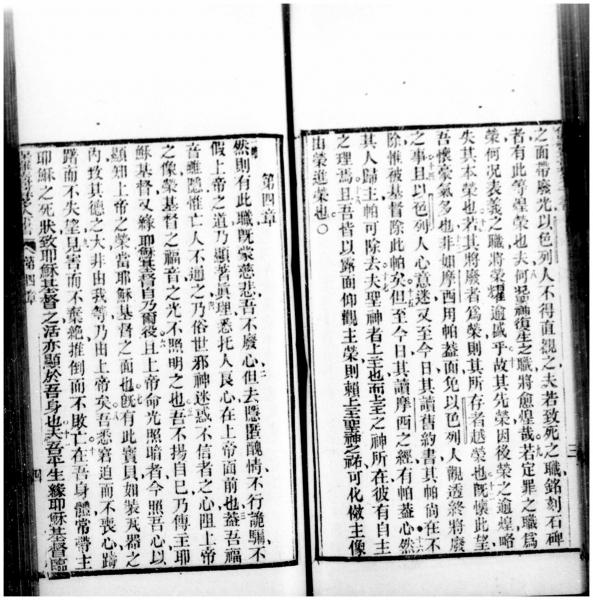 之面帶廢光以色列人不得直觀之夫若致死之職銘刻石碑
者有此等煌榮也夫何況神復生之職將愈煌哉若定罪之職爲
榮何况表義之職將榮耀逾盛乎故其先榮因後榮之逾煌略
失其本榮也若其將廢者爲榮則其所存者越榮也既懷此望
吾懷豪氣多也非如摩西用帕蓋面免以色列人觀透終將廢
之事且以色列人心意迷又至今日其讀舊約書其帕尚在不
除惟被基督除此帕矣但至今日其讀摩西之經有帕蓋心然
其人歸主帕可除去夫聖神者上主也而上主之神所在彼有自主
之理焉且吾儕以露面仰觀主榮則賴上主聖神之祐可化做主像
由榮進榮也
第四章
然則有此職既蒙慈悲吾不廢心但去隱匿醜情不行詭騙不
假上帝之道乃顯著眞理悉托人良心在上帝面前也蓋吾福
音雖隱惟亡人不通之乃俗世邪神迷惑不信者之心阻上帝
之像蒙基督之福音之光不照明之也吾不揚自己乃傳主耶
穌基督又緣耶穌基督自乃爾役且上帝命光照暗者今照吾心以
顯知上帝之榮當耶穌基督之面也既有此寶貝如裝瓦器之
內致其德之大非由我等乃由上帝矣吾悉窘迫而不喪心躊
躇而不失望見害而不棄絶推倒而不敗亡在吾身體常帶主
耶穌之死狀致耶穌基督之活亦顯於吾身也夫吾平生緣耶穌基督臨
第四章
三
四